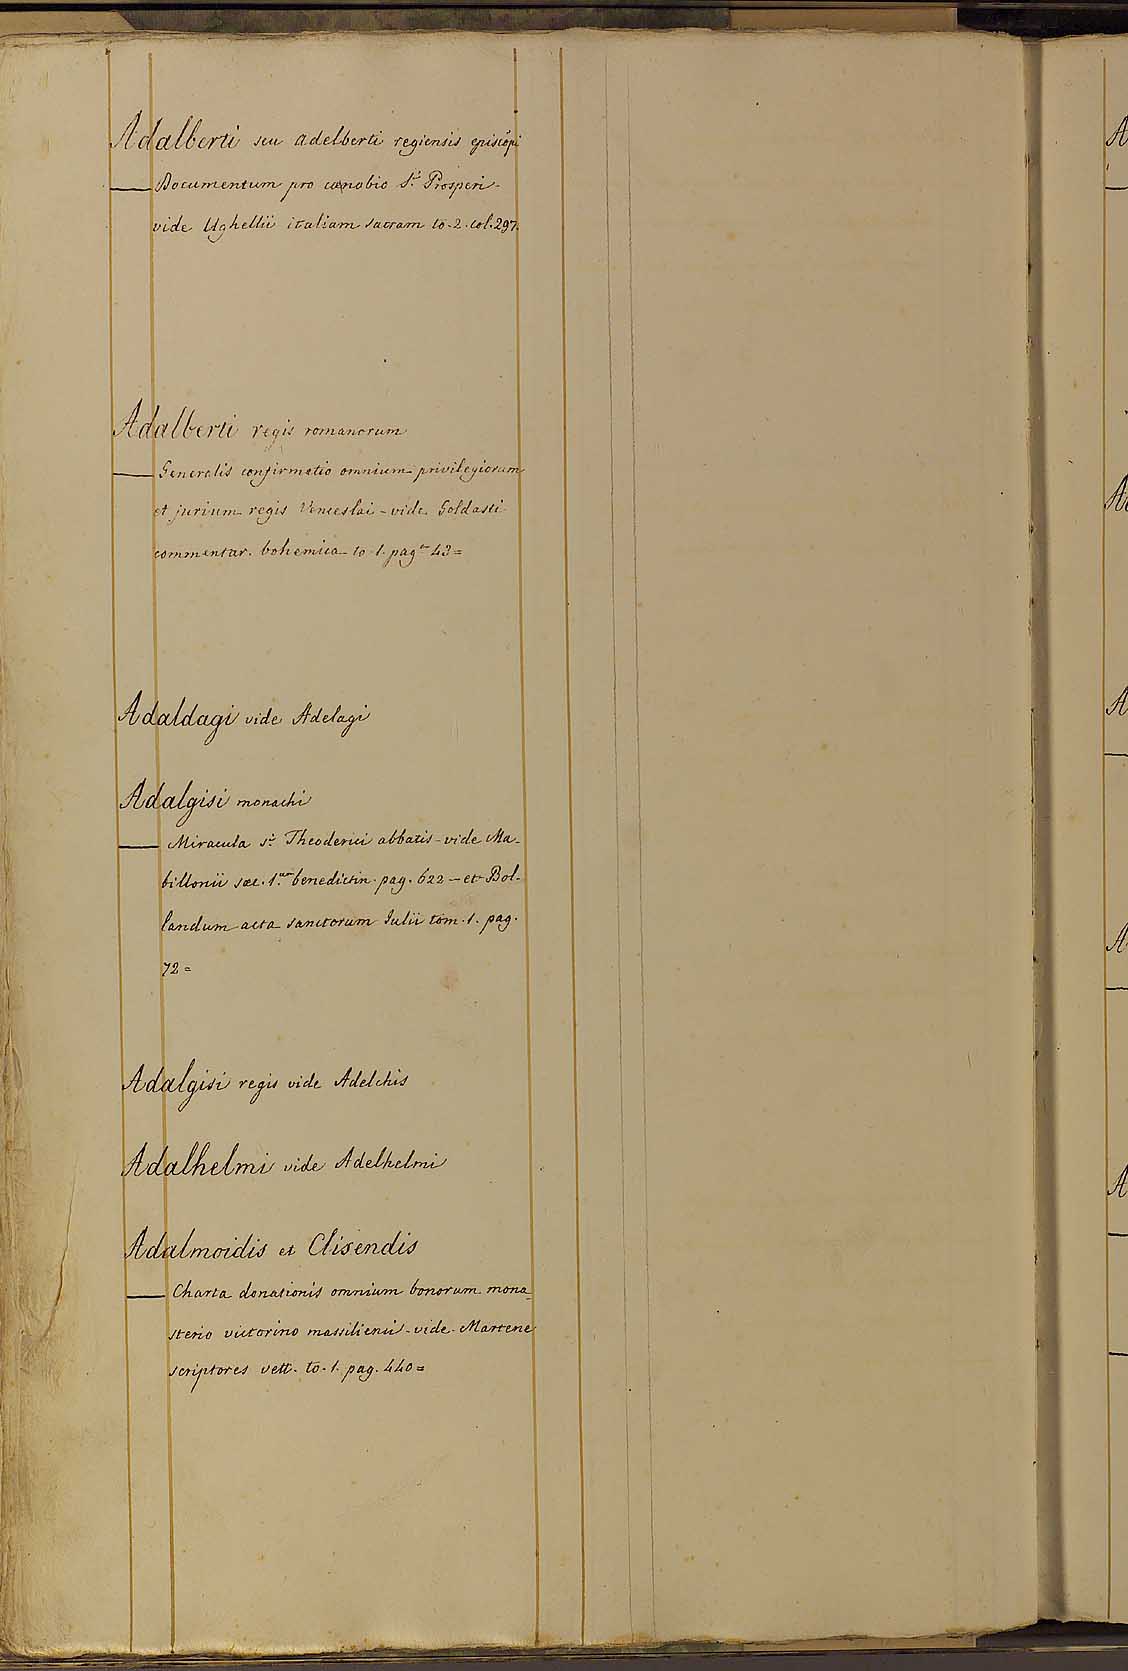 Adalberti seu adelberti regiensis episcopi
— Documentum pro cœnobio S.i Prosperi-
vide Ughellii italiam sacram to. 2. col. 297.
Adalberti regis romanorum
— Generalis confirmatio omnium privilegiorum
et jurium regis Venceslai - vide Goldasti
commentar. bohemica to. 1. pag.a 43=
Adaldagi vide Adelagi
Adalgisi monachi
— Miracula s.i Theoderici abbatis - vide Ma-
billonii sæc. 1.um benedictin. pag. 622 — et Bol-
landum acta sanctorum Iulii tom. 1. pag.
72=
Adalgisi regis vide Adelchis
Adalhelmi vide Adelhelmi
Adalmoidis et Clisendis
— Charta donationis omnium bonorum mona-
sterio victorino massiliensi - vide Martene
scriptores vett. to. 1. pag. 440=